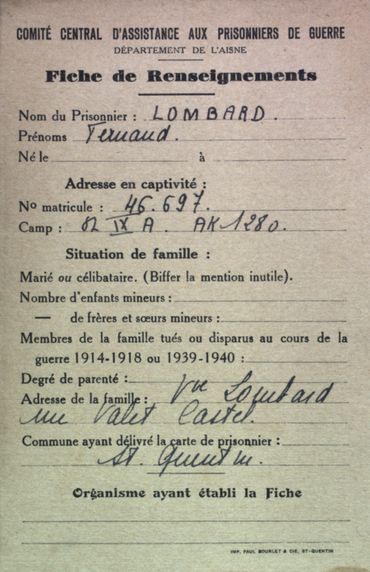 COMITÉ CENTRAL D'ASSISTANCE AUX PRISONNIERS DE GUERRE
DÉPARTEMENT DE L'AISNE
Fiche de Renseignements
Nom du Prisonnier : LOMBARD.
Prénoms Fernand.
Né le à
Adresse en captivité :
No matricule : 46.697.
Camp : IX A. AK 1280.
Situation de famille :
Marié ou célibataire. (Biffer la mention inutile).
Nombre d'enfants mineurs :
— de frères et sœurs mineurs :
Membres de la famille tués ou disparus au cours de la
guerre 1914-1918 ou 1939-1940 :
Degré de parenté :
Adresse de la famille : Vve Lombard
Castel.
Commune ayant délivré la carte de prisonnier :
St. Quentin.
Organisme ayant établi la Fiche
IMP. PAUL BOURLET & CIE, ST-QUENTIN